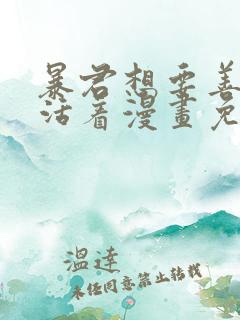 暴君想要善
活着漫畫免
溫達
未经同意禁止转载